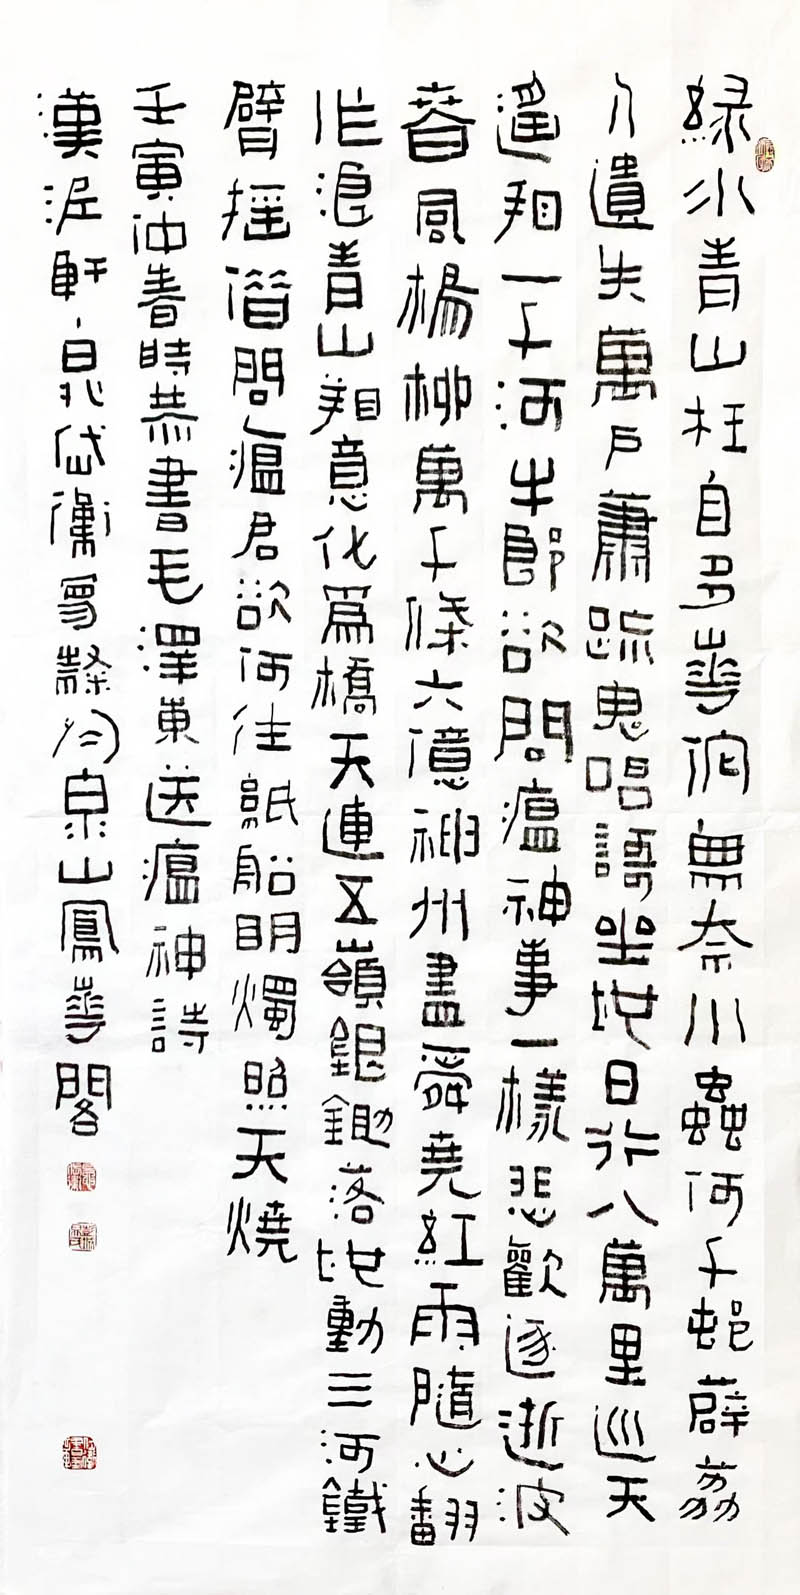 綠水青山枉自多華佗無奈小蟲何千邨薜荔
人遺矢萬戶蕭疏鬼唱謌坐地日行八萬里巡天
遙看一千河牛郎欲問瘟神事一樣悲歡逐逝波
春風楊柳萬千條六億神州盡舜堯紅雨隨心翻
作浪青山着意化爲橋天連五嶺銀鋤落地動三河鐵
臂搖借問瘟君欲何往紙船明燭照天燒
壬寅沖春時恭書毛澤東送瘟神詩
漢泥軒白兆岱衛泉山鳳華閣